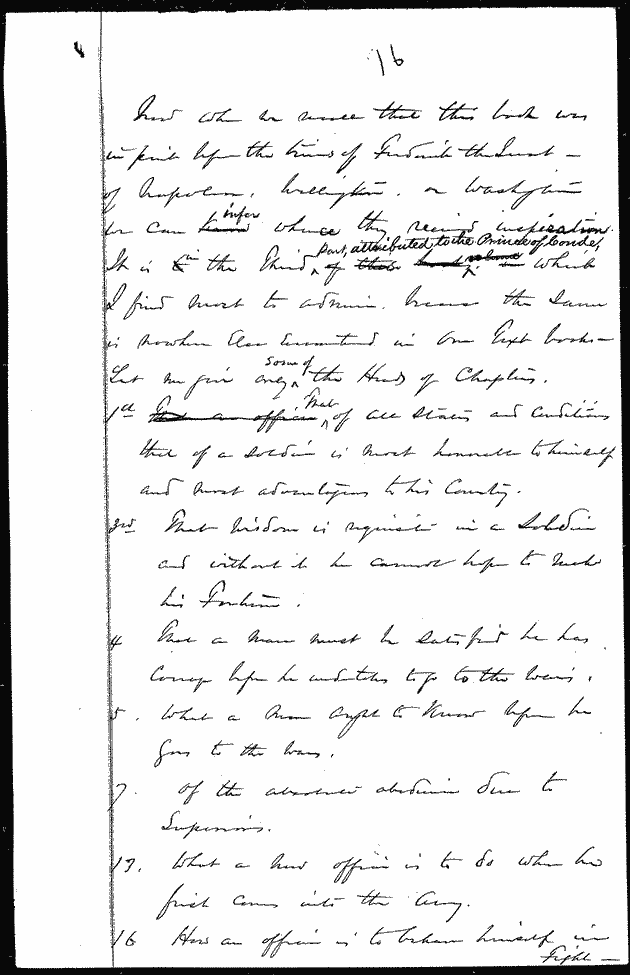 16
Now when we recall that this book was
in print before the times of Frederick the Great —
of Napoleon, Wellington, or Washington
infer
we can whence they received inspiration.
part, attributed to the Prince of Condé,
It is in the Third of that book in which
I find most to admire, because the same
is nowhere else encountered in our Text books —
some of
Let me give only the Heads of Chapters.
That
1st That an officer of all states and conditions
that of a soldier is most honorable to himself
and most advantageous to his Country.
3rd That wisdom is requisite in a Soldier
and without it he cannot hope to make
his Fortune.
4 That a man must be satisfied he has
Courage before he undertakes to go to the wars.
5. What a man ought to Know before he
goes to the wars.
7. Of the absolute obedience due to
Superiors.
13. What a new officer is to do when he
first comes into the Army.
16 How an officer is to behave himself in
Fight —